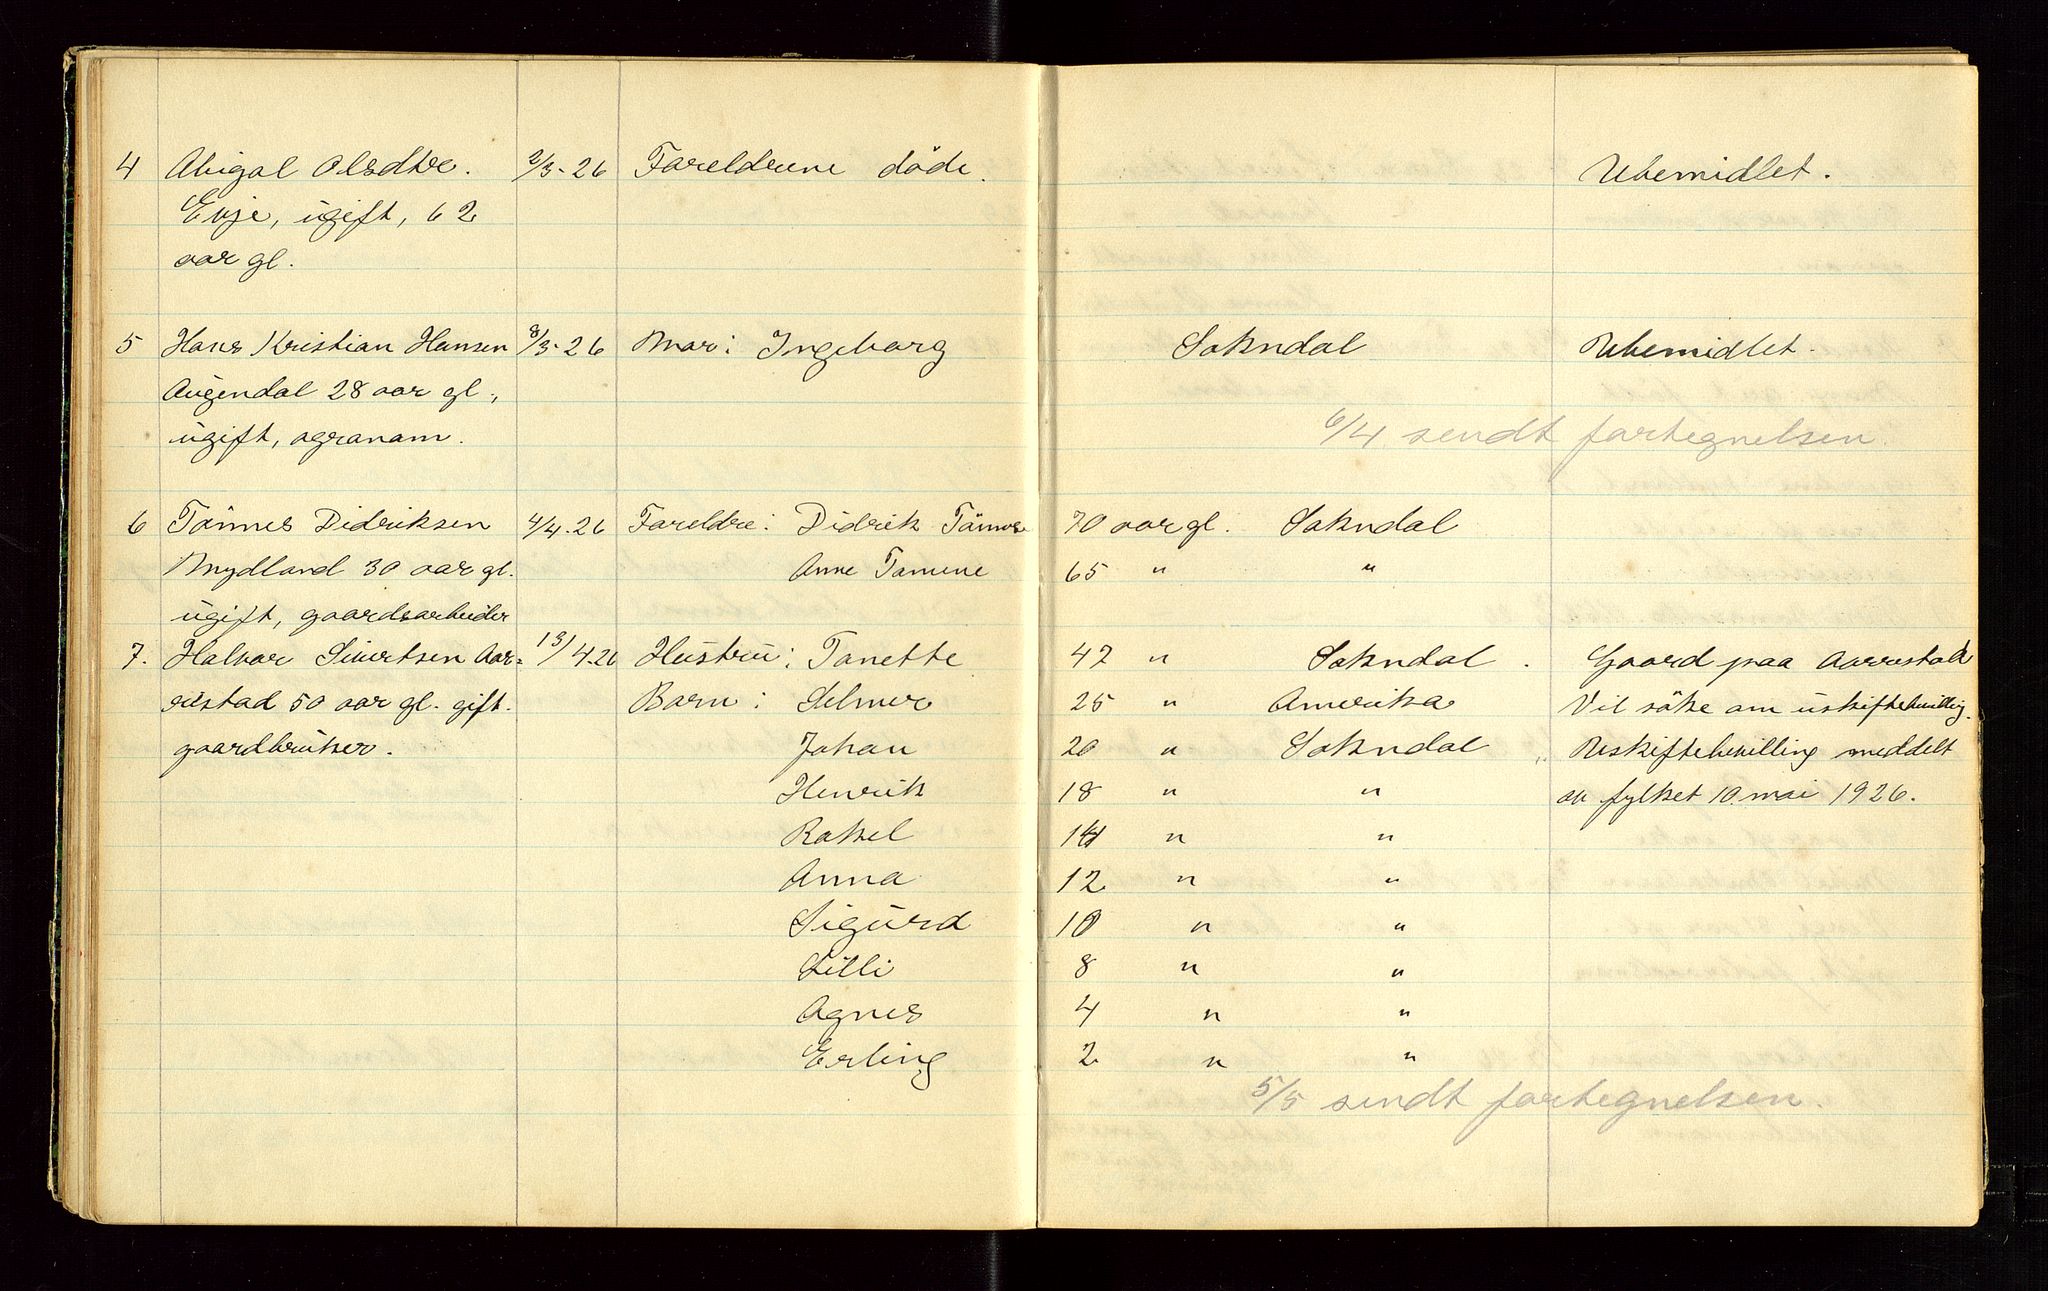 4 Abigal Olsdtr. 2/3-26 Foreldrene döde. Ubemidlet.
Evje, ugift, 62
aar gl.
5 Hans Kristian Hansen 8/3-26 Mor: Ingeborg Sokndal Ubemidlet.
Augendal 28 aar gl.,
ugift, agronom.
6/4 sendt fortegnelsen.
6 Tönnes Didriksen 4/4-26 Foreldre: Didrik Tönnese 70 aar gl. Sokndal
Mydland 30 aar gl. Anne Tomine 65 " "
ugift, gaardsarbeider
7. Halvor Sivertsen Aar= 13/4-26 Hustru: Tonette 47 " Sokndal. Gaard paa Aarrestad
rustad 50 aar gl. gift. Barn: Selmer 25 " Amerika Vil söke om uskiftebevilling.
gaardbruker. Johan 20 " Sokndal Uskiftebevilling meddelt
Henrik 18 " " av fylket 10 mai 1926.
Rakel 14 " "
Anna 12 " "
Sigurd 10 " "
Lilli 8 " "
Agnes 4 " "
Erling 2 " "
5/5 sendt fortegnelsen.